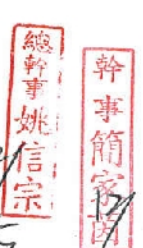 總幹事姚信宗
幹事簡家